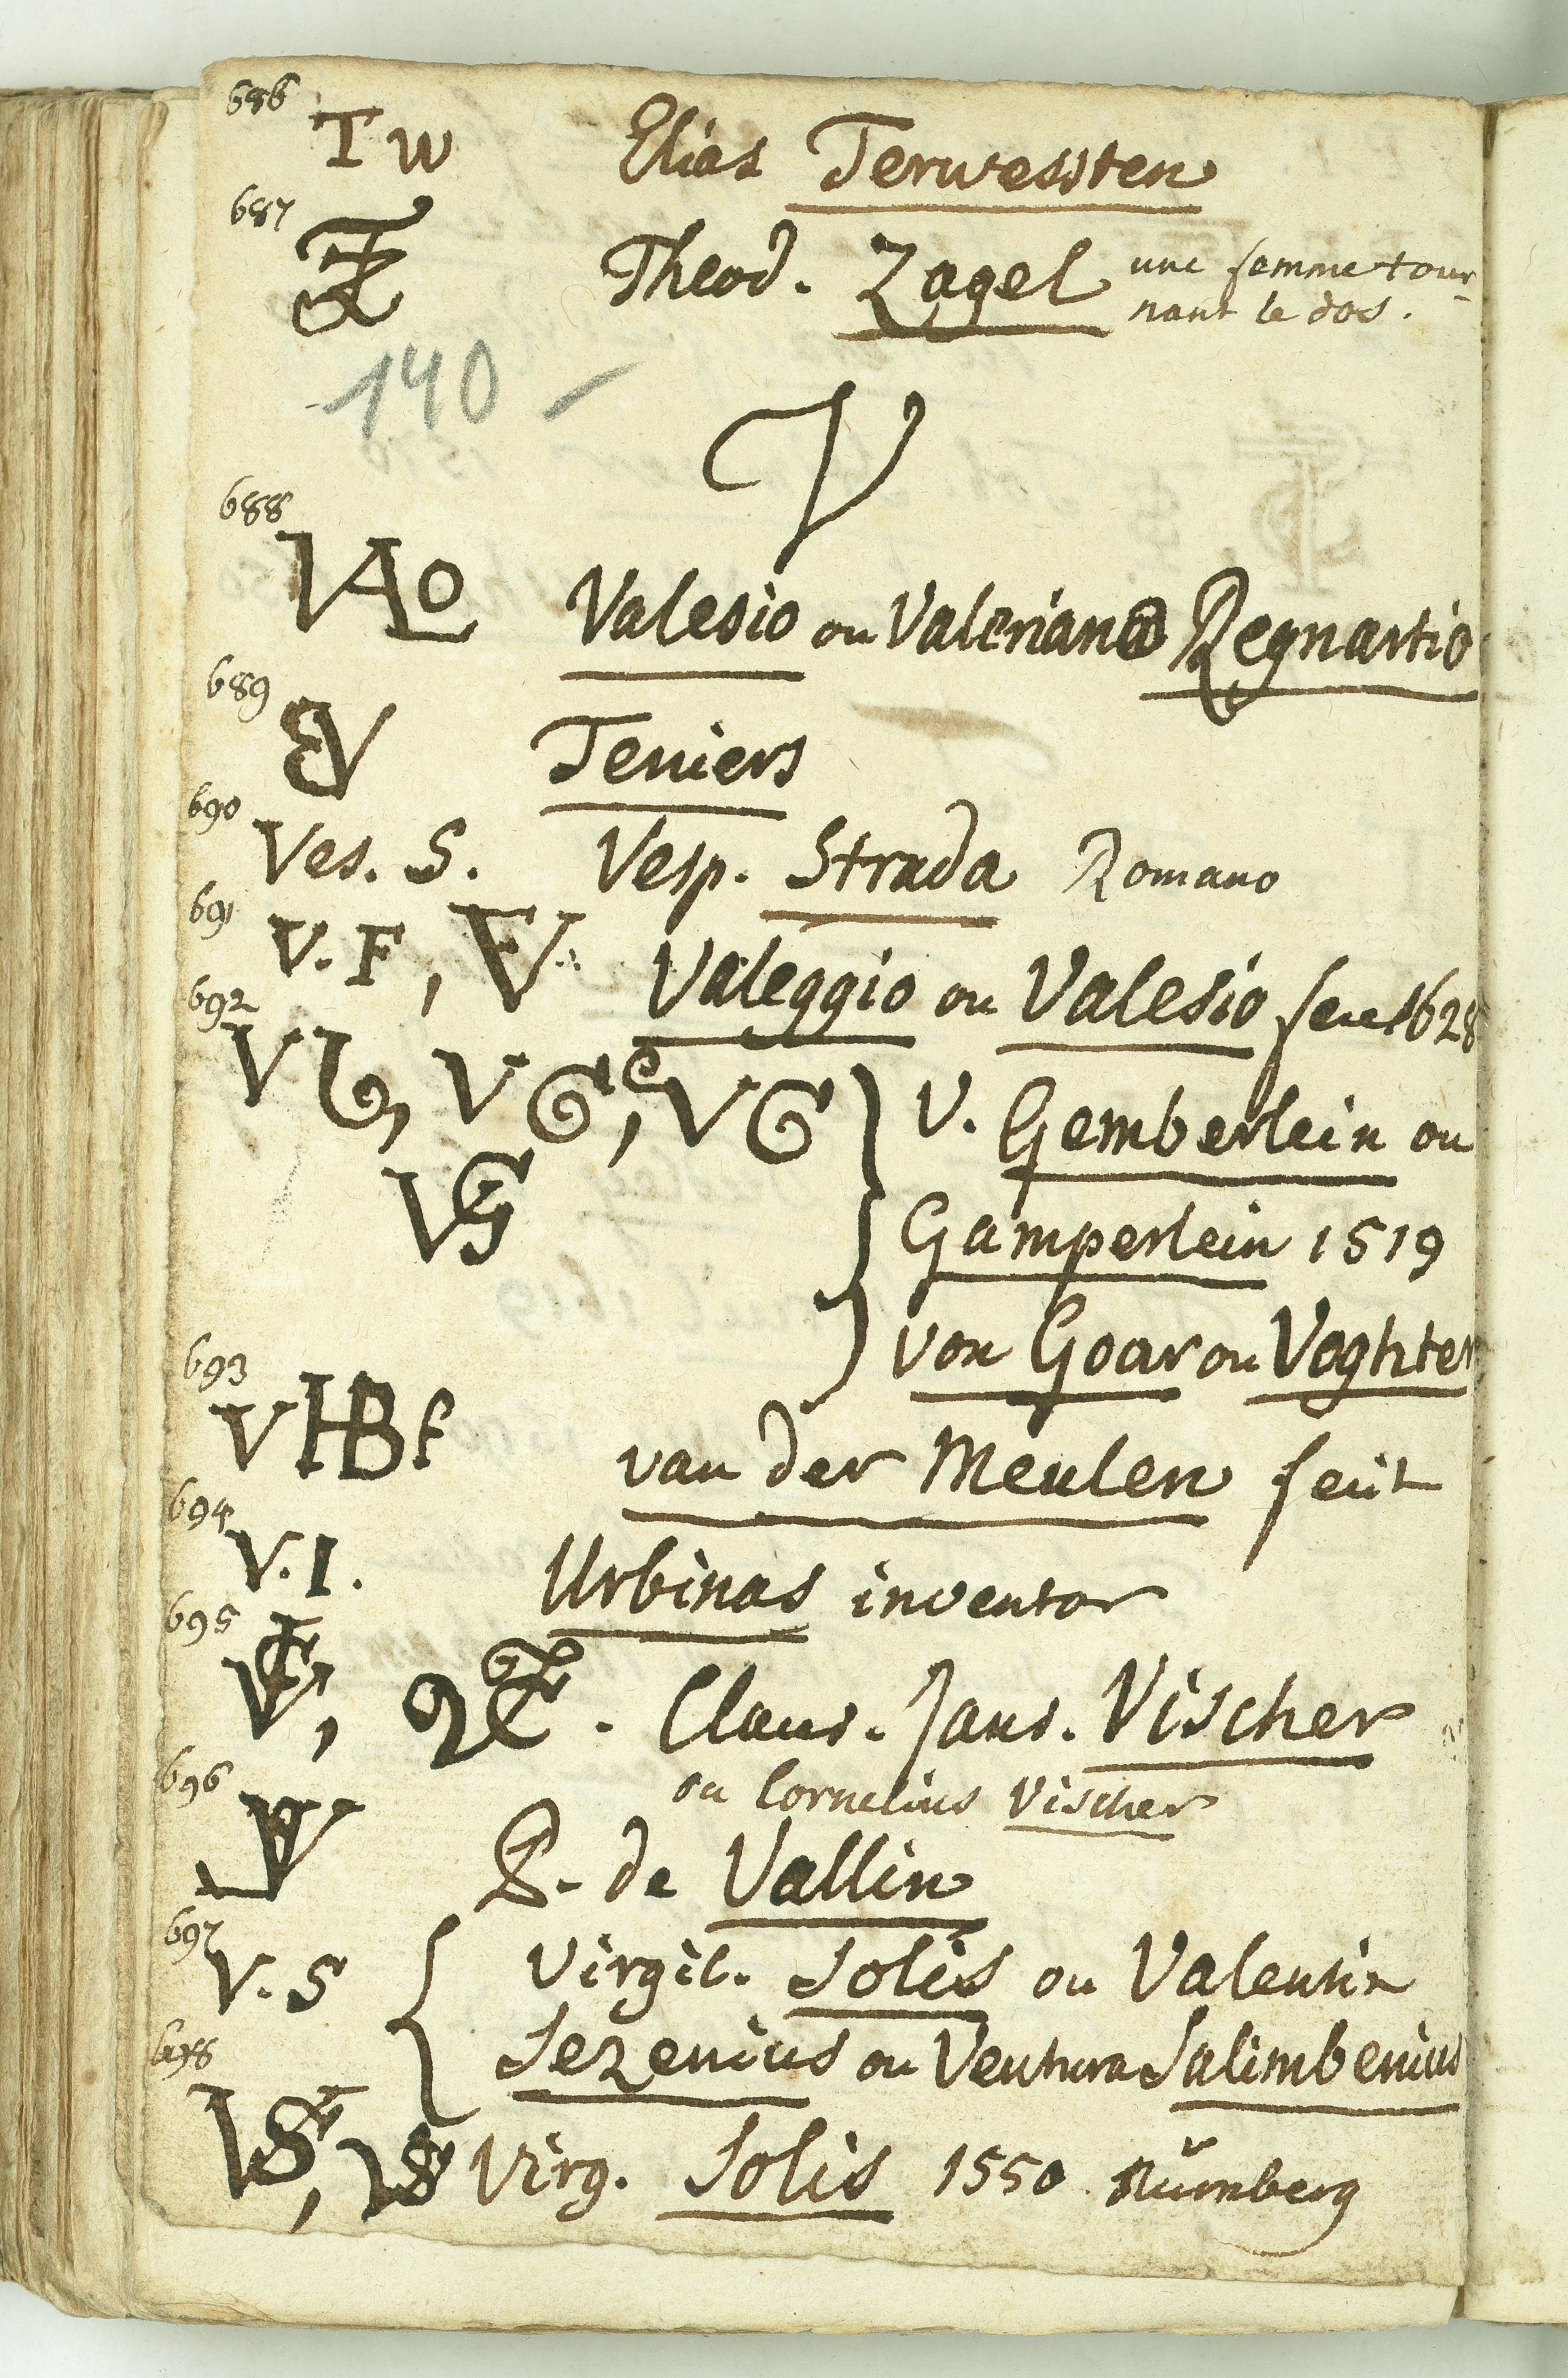 686 TW Elias Terwessten
687 TZ Theod. Zagel une femme tour-
nant le dos.
140 -
V
688 VALo Valesio ou Valeriano Regnartio
689 EV Teniers
690 Ves. S. Vesp. Strada Romano
691 V. F, VF Valeggio ou Valesio fecu 1628
692 VG, VG, VG V. Gemberlein ou
VG Gamperlein 1519
von Goar ou Voghter
693 VHBf van der Meulen fecit
694 V. I. Urbinas inventor
695 Claus. Jans. Vischer
ou Cornelius Vischer
696 P. de Vallin
697 V. S Virgil. Solis ou Valentin
Sezenius ou Ventura Salimbenius
698 VS, VS Virg. Solis 1550 Nürnberg